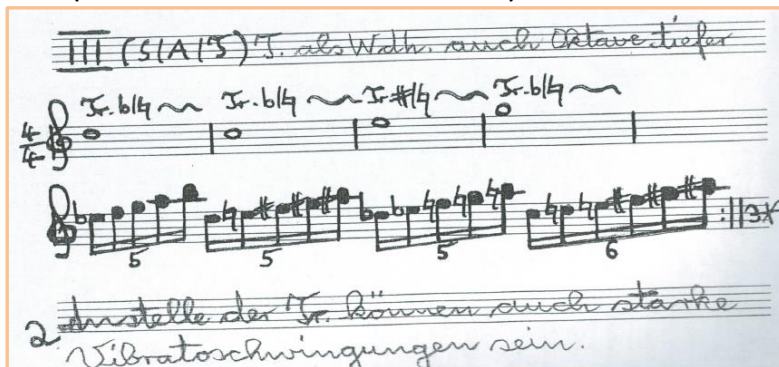 III (S/A/T) T. als Wdh. auch Oktave tiefer
Tr. b/♮ Tr. b/♮ Tr. #/♮ Tr. b/♮
4/4
5 5 5 6 :|| 3x
2 Anstelle der Tr. können auch starke
Vibratoschwingungen sein.